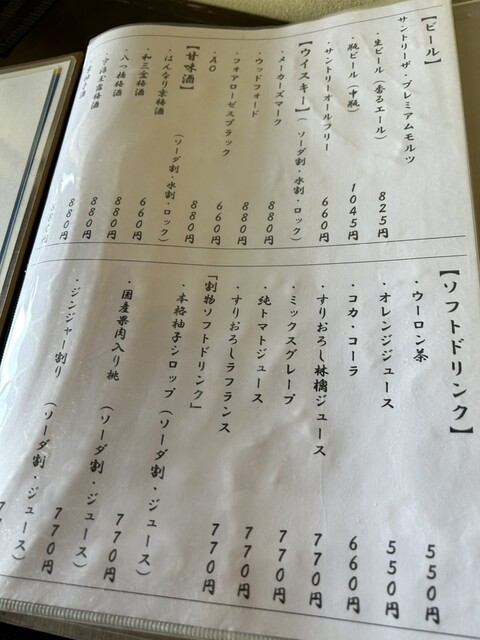 【ビール】
サントリーザ・プレミアムモルツ
・生ビール（香るエール） 825円
・瓶ビール（中瓶） 1045円
・サントリーオールフリー 660円
【ウイスキー】（ソーダ割・水割・ロック）
・メーカーズマーク 880円
・ウッドフォード 880円
・フォアローゼスブラック 660円
・AO 880円
【甘味酒】（ソーダ割・水割・ロック）
・はんなり京梅酒 660円
・和三盆梅酒 880円
・八つ橋梅酒 880円
880円
【ソフトドリンク】
・ウーロン茶 550円
・オレンジジュース 550円
・コカ・コーラ 660円
・すりおろし林檎ジュース 770円
・ミックスグレープ 770円
・純トマトジュース 770円
・すりおろしラフランス 770円
「割物ソフトドリンク」
・本格柚子シロップ（ソーダ割・ジュース） 770円
・国産果肉入り桃（ソーダ割・ジュース） 770円
・ジンジャー割り（ソーダ割・ジュース）